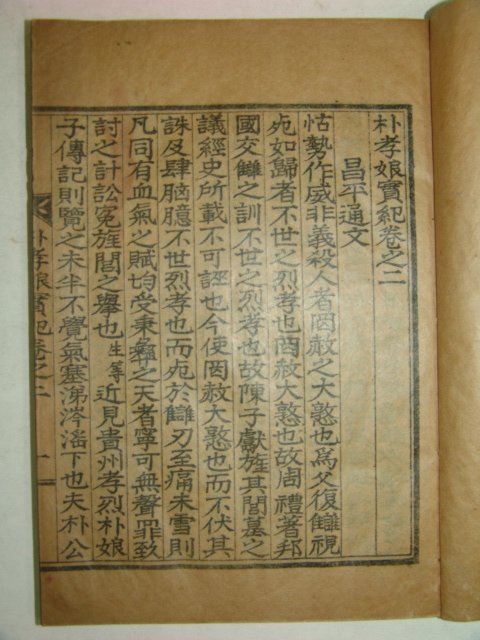 朴孝娘實紀卷之二
昌平通文
怙勢作威非義殺人者罔赦之大憝也爲父復讎視
死如歸者不世之烈孝也罔赦大憝也故周禮著邦
國交讎之訓不世之烈孝也故陳子獻旌其閭墓之
議經史所載不可誣也今使罔赦大憝也而不伏其
誅反肆腦臆不世烈孝也而死於讎刃至痛未雪則
凡同有血氣之賦均受秉彝之天者寧可無聲罪致
討之計訟冤旌閭之擧也生等近見貴州孝烈朴娘
子傳記則覽之未半不覺氣塞涕泗滛下也夫朴公
朴孝娘實紀卷之二
一